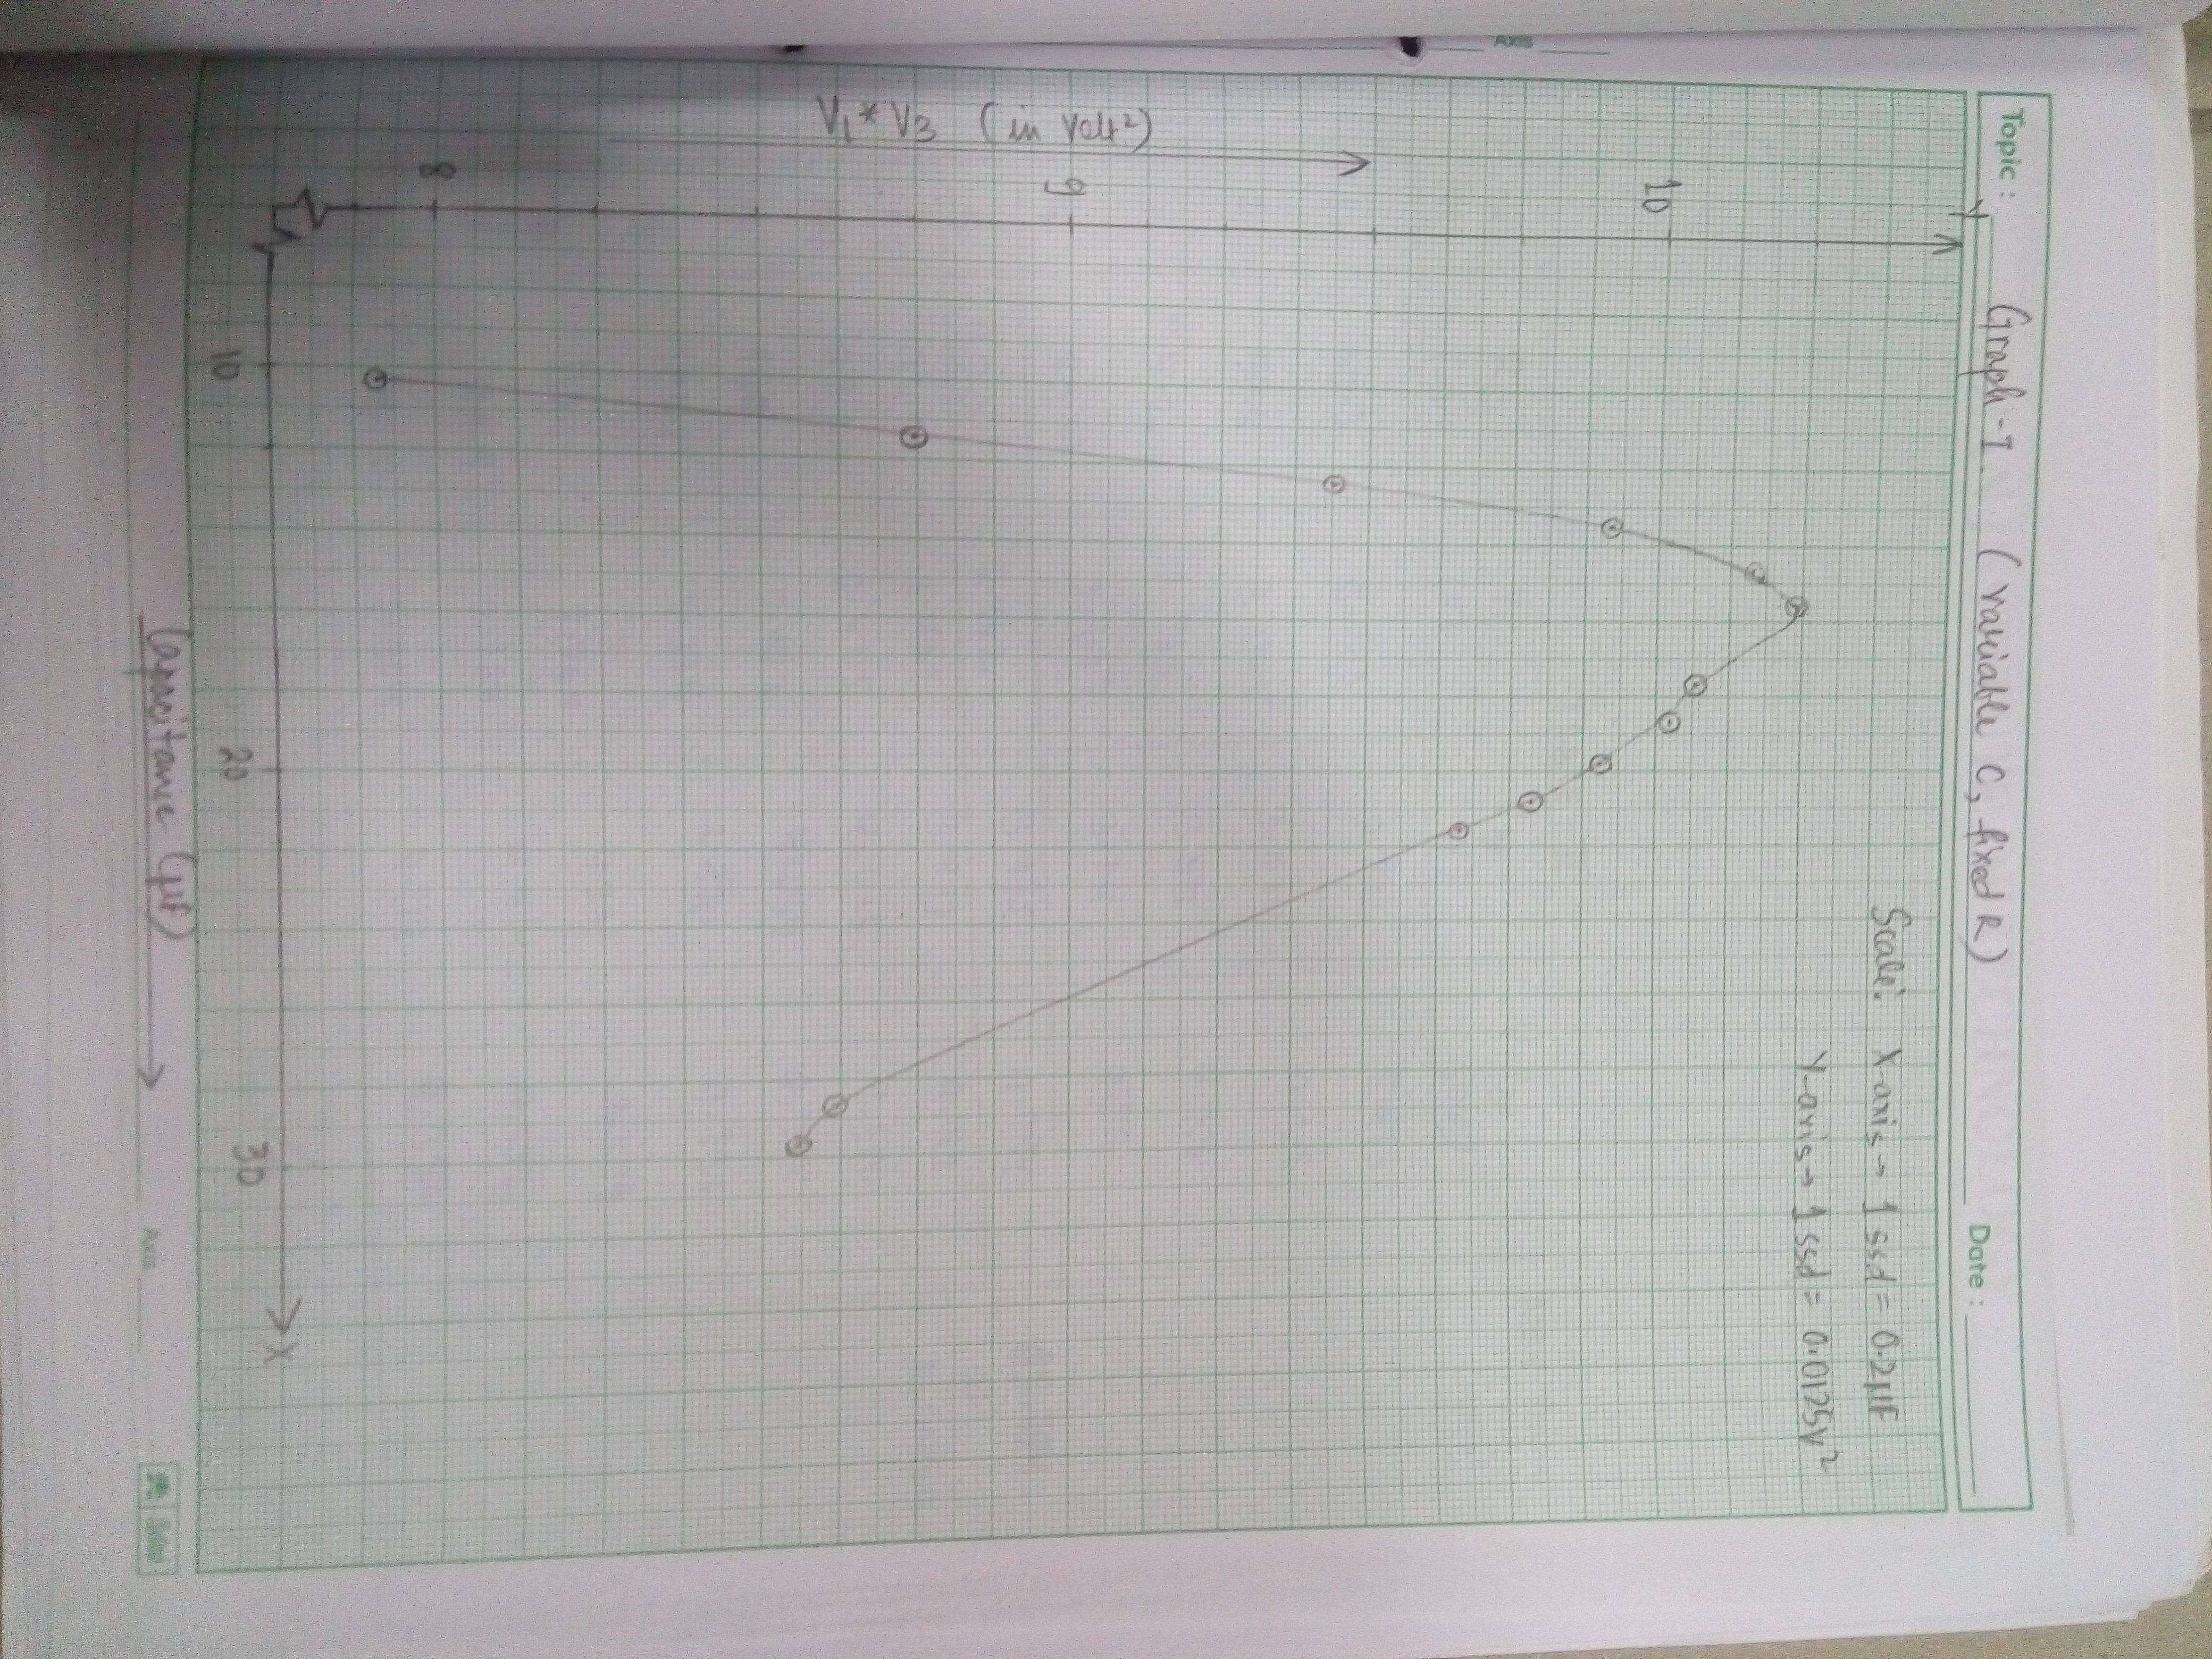 Topic : Graph-I (variable C, fixed R) Date :
Y
Scale: X-axis → 1 ssd = 0.2µF
Y-axis → 1 ssd = 0.0125V²
10
9
8
V₁ * V₃ (in Volt²)
Axis
10 20 30 X
Capacitance (µF) Axis